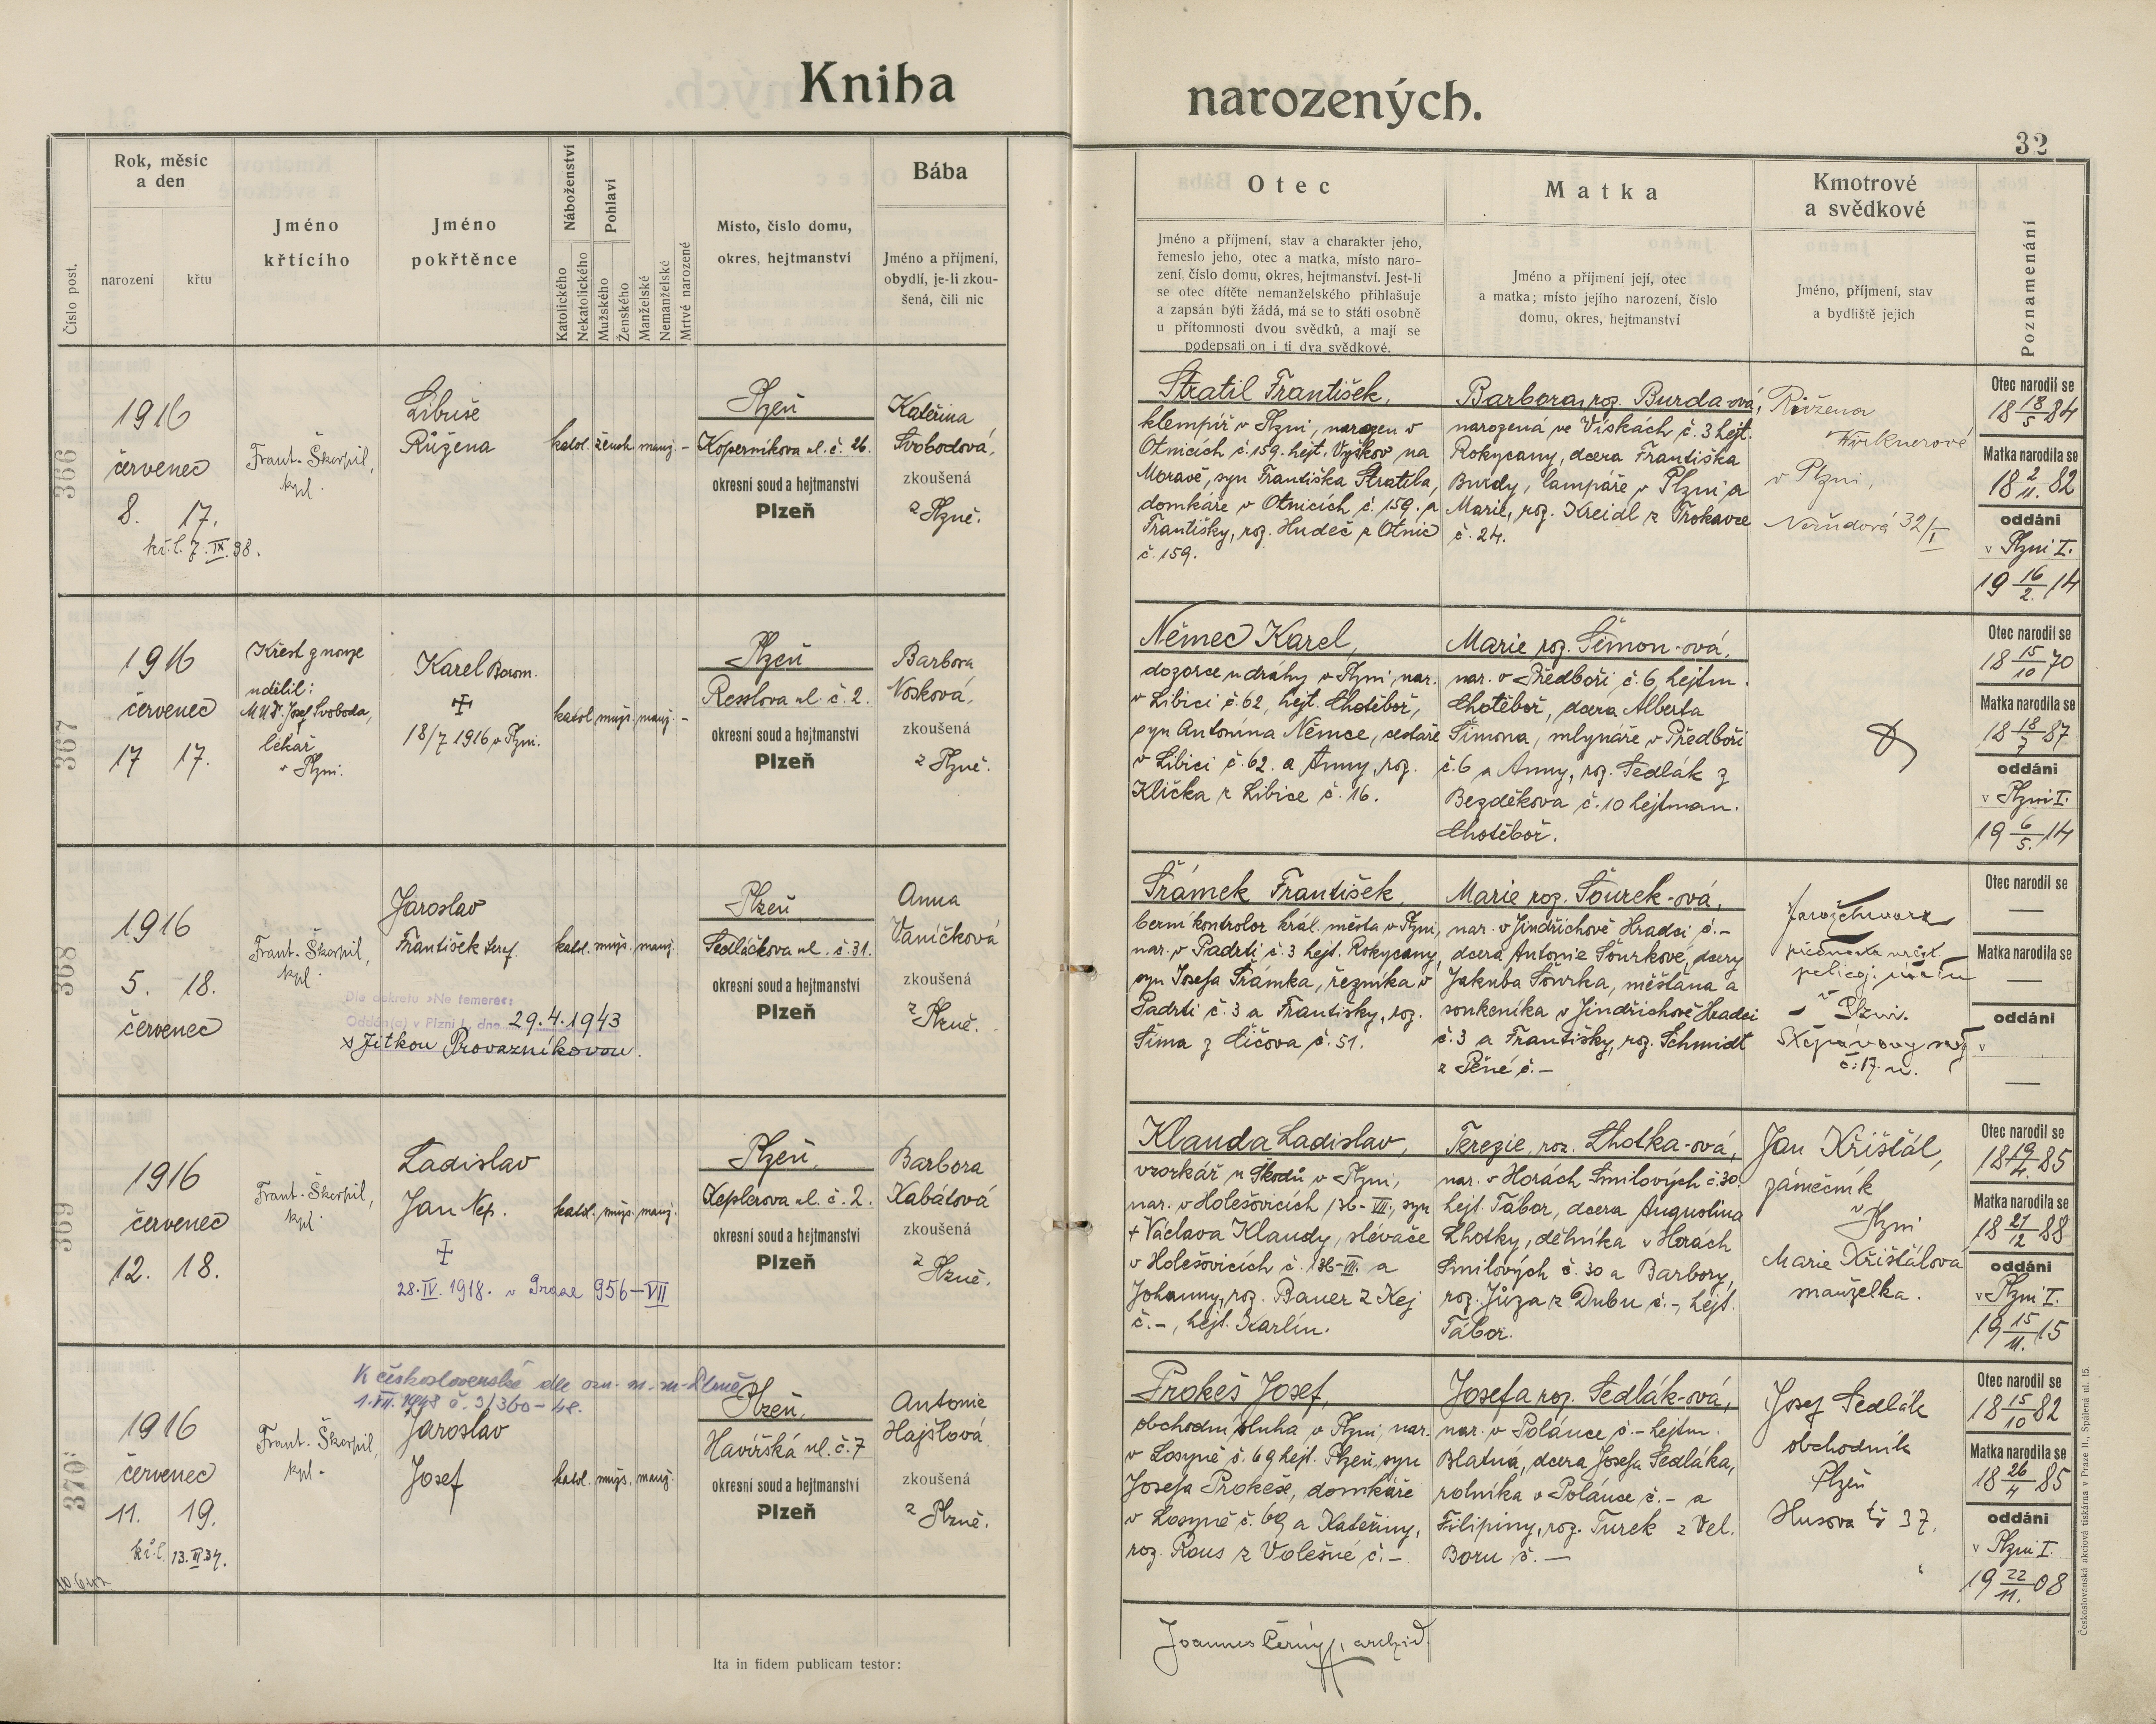 Kniha
narozených.
32
Číslo post.
Rok, měsíc
a den
narození
křtu
Jméno
křtícího
Jméno
pokřtěnce
Náboženství
Katolického
Nekatolického
Pohlaví
Mužského
Ženského
Manželské
Nemanželské
Mrtvě narozené
Místo, číslo domu,
okres, hejtmanství
Bába
Jméno a příjmení,
obydlí, je-li zkou-
šená, čili nic
Otec
Jméno a příjmení, stav a charakter jeho,
řemeslo jeho, otec a matka, místo naro-
zení, číslo domu, okres, hejtmanství. Jest-li
se otec dítěte nemanželského přihlašuje
a zapsán býti žádá, má se to státi osobně
u přítomnosti dvou svědků, a mají se
podepsati on i ti dva svědkové.
Matka
Jméno a příjmení její, otec
a matka; místo jejího narození, číslo
domu, okres, hejtmanství
Kmotrové
a svědkové
Jméno, příjmení, stav
a bydliště jejich
Poznamenání
366
1916
červenec
8. 17.
kř. l. 7. IX. 38.
Frant. Škorpil,
kpl.
Libuše
Růžena
katol. žensk. manž. -
Plzeň
Koperníkova ul. č. 26.
okresní soud a hejtmanství
Plzeň
Kateřina
Svobodová,
zkoušená
z Plzně.
Stratil František,
klempíř v Plzni, narozen v
Otnicích č. 159. hejt. Vyškov na
Moravě, syn Františka Stratila,
domkáře v Otnicích č. 159. a
Františky, roz. Hudeč z Otnic
č. 159.
Barbora, roz. Burda-ová,
narozená ve Vískách č. 3 hejt.
Rokycany, dcera Františka
Burdy, lampáře v Plzni a
Marie, roz. Kreidl z Trokavce
č. 24.
Růžena
v Plzni,
32/I
Otec narodil se
18 18/5 84
Matka narodila se
18 2/11. 82
oddáni
v Plzni I.
19 16/2. 14
367
1916
červenec
17 17.
Křest z nouze
udělil:
MUDr. Josef Svoboda,
lékař
v Plzni.
Karel Borom.
18/7 1916 v Plzni.
katol. mužs. manž. -
Plzeň
Resslova ul. č. 2.
okresní soud a hejtmanství
Plzeň
Barbora
Nosková,
zkoušená
z Plzně.
Němec Karel,
dozorce u dráhy v Plzni, nar.
v Libici č. 62, hejt. Chotěboř,
syn Antonína Němce, cestáře
v Libici č. 62. a Anny, roz.
Klička z Libice č. 16.
Marie roz. Šimon-ová,
nar. v Předboři č. 6, hejtm.
Chotěboř, dcera Alberta
Šimona, mlynáře v Předboři
č. 6 a Anny, roz. Sedlák z
Bezděkova č. 10 hejtman.
Chotěboř.
Otec narodil se
18 15/10 70
Matka narodila se
18 18/7 87
oddáni
v Plzni I.
19 6/5. 14
368
1916
5. 18.
červenec
Frant. Škorpil,
kpl.
Jaroslav
František Seraf.
Dle dekretu »Ne temere«:
Oddán(a) v Plzni I. dne 29.4.1943
s Jitkou Provazníkovou.
katol. mužs. manž.
Plzeň
Sedláčkova ul. č. 31.
okresní soud a hejtmanství
Plzeň
Anna
Vaníčková
zkoušená
z Plzně.
Šrámek František,
berní kontrolor král. města v Plzni,
nar. v Padrti č. 3 hejt. Rokycany,
syn Josefa Šrámka, řezníka v
Padrti č. 3 a Františky, roz.
Šíma z Čičova č. 51.
Marie roz. Šourek-ová,
nar. v Jindřichově Hradci č. -
dcera Antonie Šourkové, dcery
Jakuba Šourka, měšťana a
soukeníka v Jindřichově Hradci
č. 3 a Františky, roz. Schmidt
z Pěné č. -
v Plzni.
č. 17. n.
Otec narodil se
—
Matka narodila se
—
oddáni
v
—
369
1916
červenec
12. 18.
Frant. Škorpil,
kpl.
Ladislav
Jan Nep.
28. IV. 1918. v Praze 956-VII
katol. mužs. manž.
Plzeň,
Keplerova ul. č. 2.
okresní soud a hejtmanství
Plzeň
Barbora
Kabátová
zkoušená
z Plzně.
Klauda Ladislav,
vzorkář u Škodů v Plzni,
nar. v Holešovicích 136-VII., syn
+ Václava Klaudy, slévače
v Holešovicích č. 136-VII. a
Johanny, roz. Bauer z Kej
č. -, hejt. Karlín.
Terezie, roz. Lhotka-ová,
nar. v Horách Smilových č. 30.
hejt. Tábor, dcera Augustina
Lhotky, dělníka v Horách
Smilových č. 30 a Barbory,
roz. Jůza z Dubu č. -, hejt.
Tábor.
Jan Křišťál,
zámečník
v Plzni
Marie Křišťálová
manželka.
Otec narodil se
18 19/4. 85
Matka narodila se
18 21/12 88
oddáni
v Plzni I.
19 15/11. 15
370
K československé dle
1. VII. 1948 č. 31360-48.
1916
červenec
11. 19.
kř. l. 13. II 34.
Frant. Škorpil,
kpl.
Jaroslav
Josef
katol. mužs. manž.
Plzeň,
Havířská ul. č. 7
okresní soud a hejtmanství
Plzeň
Antonie
Hajšlová
zkoušená
z Plzně.
Prokeš Josef,
obchodní sluha v Plzni, nar.
v Losyně č. 69 hejt. Plzeň, syn
Josefa Prokeše, domkáře
v Losyně č. 69 a Kateřiny,
roz. Rous z Volešné č. -
Josefa roz. Sedlák-ová,
nar. v Polánce č. - hejtm.
Blatná, dcera Josefa Sedláka,
rolníka v Polánce č. - a
Filipiny, roz. Turek z Vel.
Boru č. —
Josef Sedlák
obchodník
Plzeň
Husova tř 37.
Otec narodil se
18 15/10 82
Matka narodila se
18 26/4 85
oddáni
v Plzni I.
19 22/11. 08
Ita in fidem publicam testor:
Joannes Černý, archid.
Českoslovanská akciová tiskárna v Praze II., Spálená ul. 15.